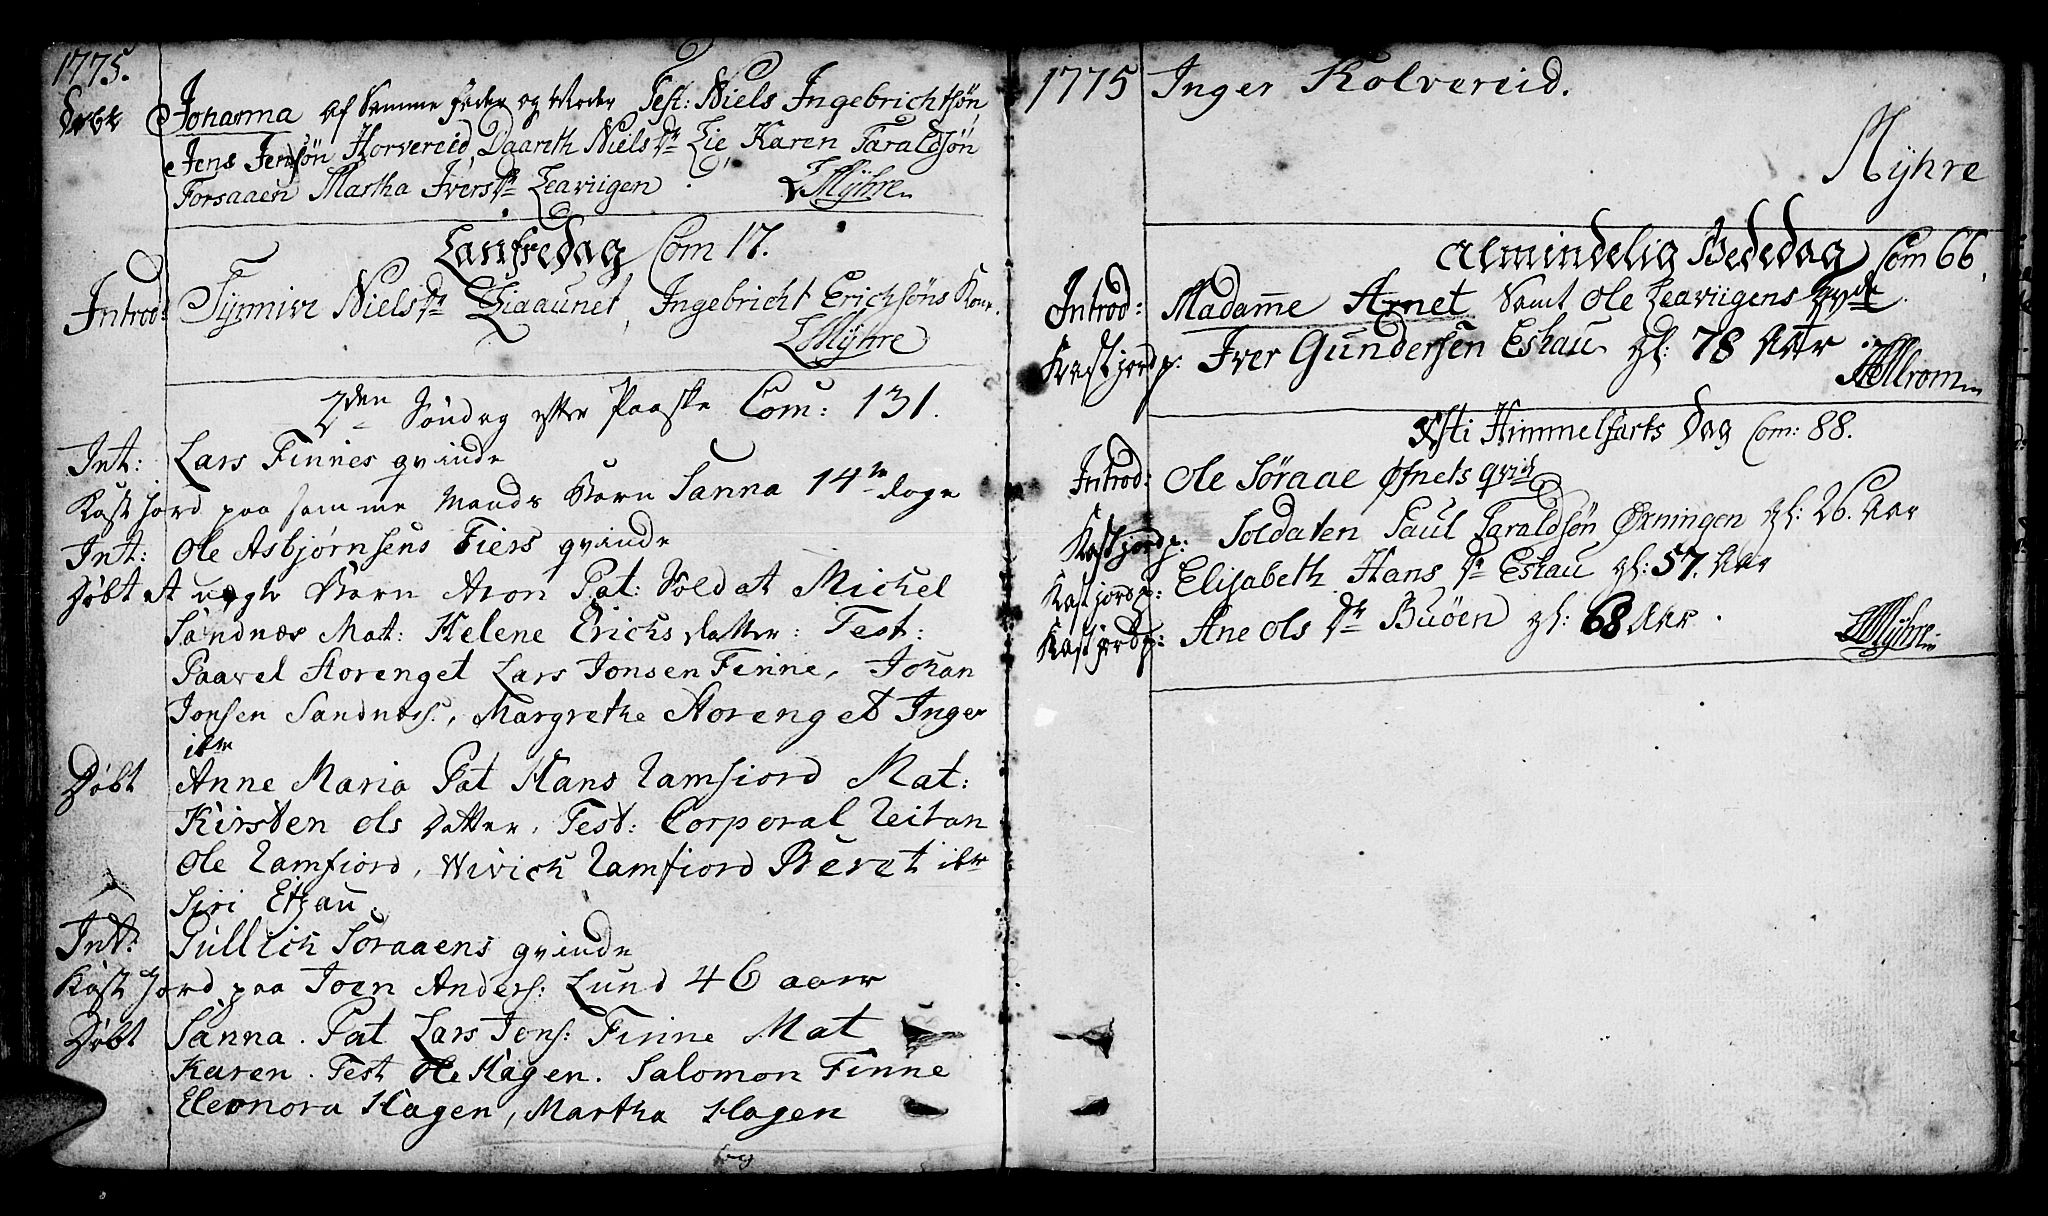 1775.
Døbt Johanna af Samme Fader og Moder Test: Niels Ingebrichtsøn
Jens Jensøn Horvereid, Daareth Niels Dr Lie Karen Taraldsøn
Forsaaen Martha Ivers Dr Leaviigen. LMÿhre
Lanfredag Com 17.
Introd: Niels Dr Liaaunet, Ingebricht Erichsøns Kone.
LMÿhre
2den Søndag efter Paaske Com: 131.
Int: Lars Finnes qvinde
Kast Jord paa samme Mands Barn Sanna 14 dage
Int: Ole Asbjørnsens Fiers qvinde
Døbt et uægte Barn Aron Pat: Soldat Michel
Sandnæs Mat: Helene Erichs datter: Test:
Paavel Storenget Lars Jonsen Finne, Johan
Jonsen Sandnæs:, Margrethe Storenget Inger
ibm
Døbt Anne Maria Pat Hans Ramfiord Mat:
Kirsten Ols Datter, Test: Corporal Reitan
Ole Ramfiord, Wivich Ramfiord Beret ibm
Siri Etzau.
Int: Gullich Soraaens qvinde
Kast Jord paa Joen Anders: Lund 46 aar
Døbt Sanna. Pat Lars Jons: Finne Mat
Karen. Test Ole Hagen. Salomon Finne
Eleonora Hagen, Martha Hagen
og
1775 Inger Kolvereid.
Mÿhre
Almindelig Bededag Com 66,
Introd: Madame Arnet Samt Ole Leaviigens
Kast jord p: Iver Gundersen Eshau gl: 78 Aar
Xsti Himmelfarts Dag Com: 88.
Introd: Ole Søraae Øfnets qvich
Kast jord p: Soldaten Paul Taraldsøn Øxningen gl: 26. Aar
Kast jord p: Elisabeth Hans Dr Eshau gl: 57. Aar
Kast jord p: Ane Ols Dr Buøen gl: 68 Aar.
LMÿhre